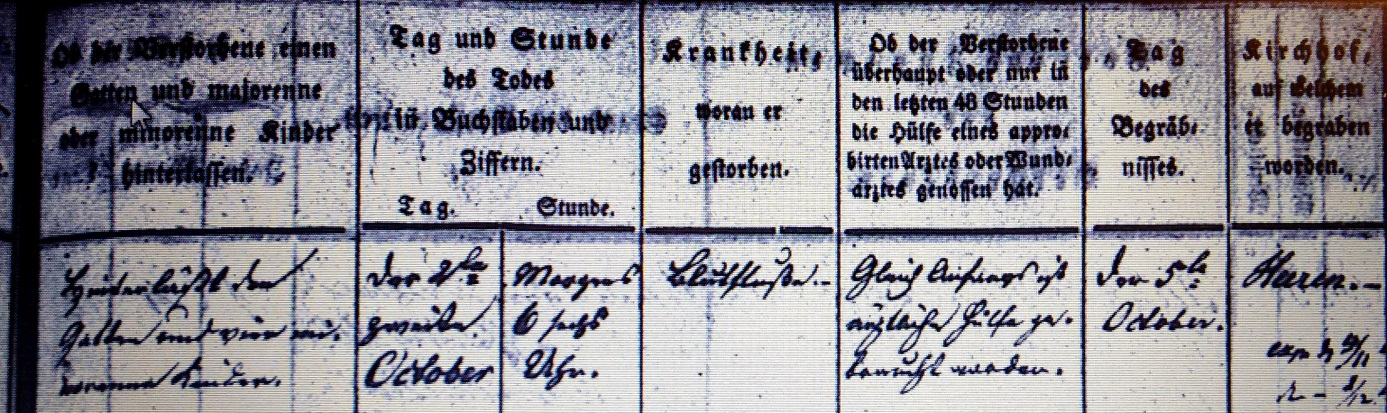 Ob der Verstorbene einen
Gatten und majorenne
oder minorenne Kinder
hinterlassen.
Tag und Stunde
des Todes
in Buchstaben und
Ziffern.
Tag.
Stunde.
Krankheit,
woran er
gestorben.
Ob der Verstorbene
überhaupt oder nur in
den letzten 48 Stunden
die Hülfe eines appro-
birten Arztes oder Wund-
arztes genossen hat.
Tag
des
Begräb-
nisses.
Kirchhof,
auf welchem
er begraben
worden.
Hinterläßt den
Gatten und vier mi-
norenne Kinder.
Der 2te
zweite
October
Morgens
6 sechs
Uhr.
Blutfluße.-
Gleich Anfangs ist
ärztliche Hülfe ge-
braucht worden.
Der 5te
October.
Heeren.-